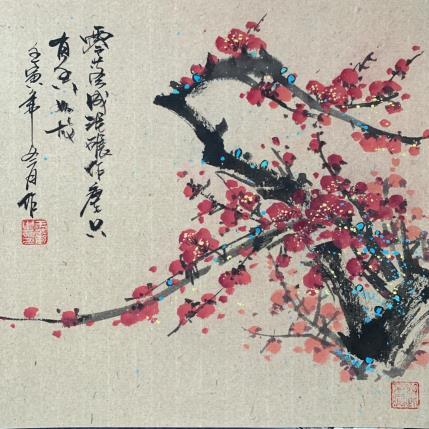 零落成泥碾作塵只
有香如故
壬寅年冬月作